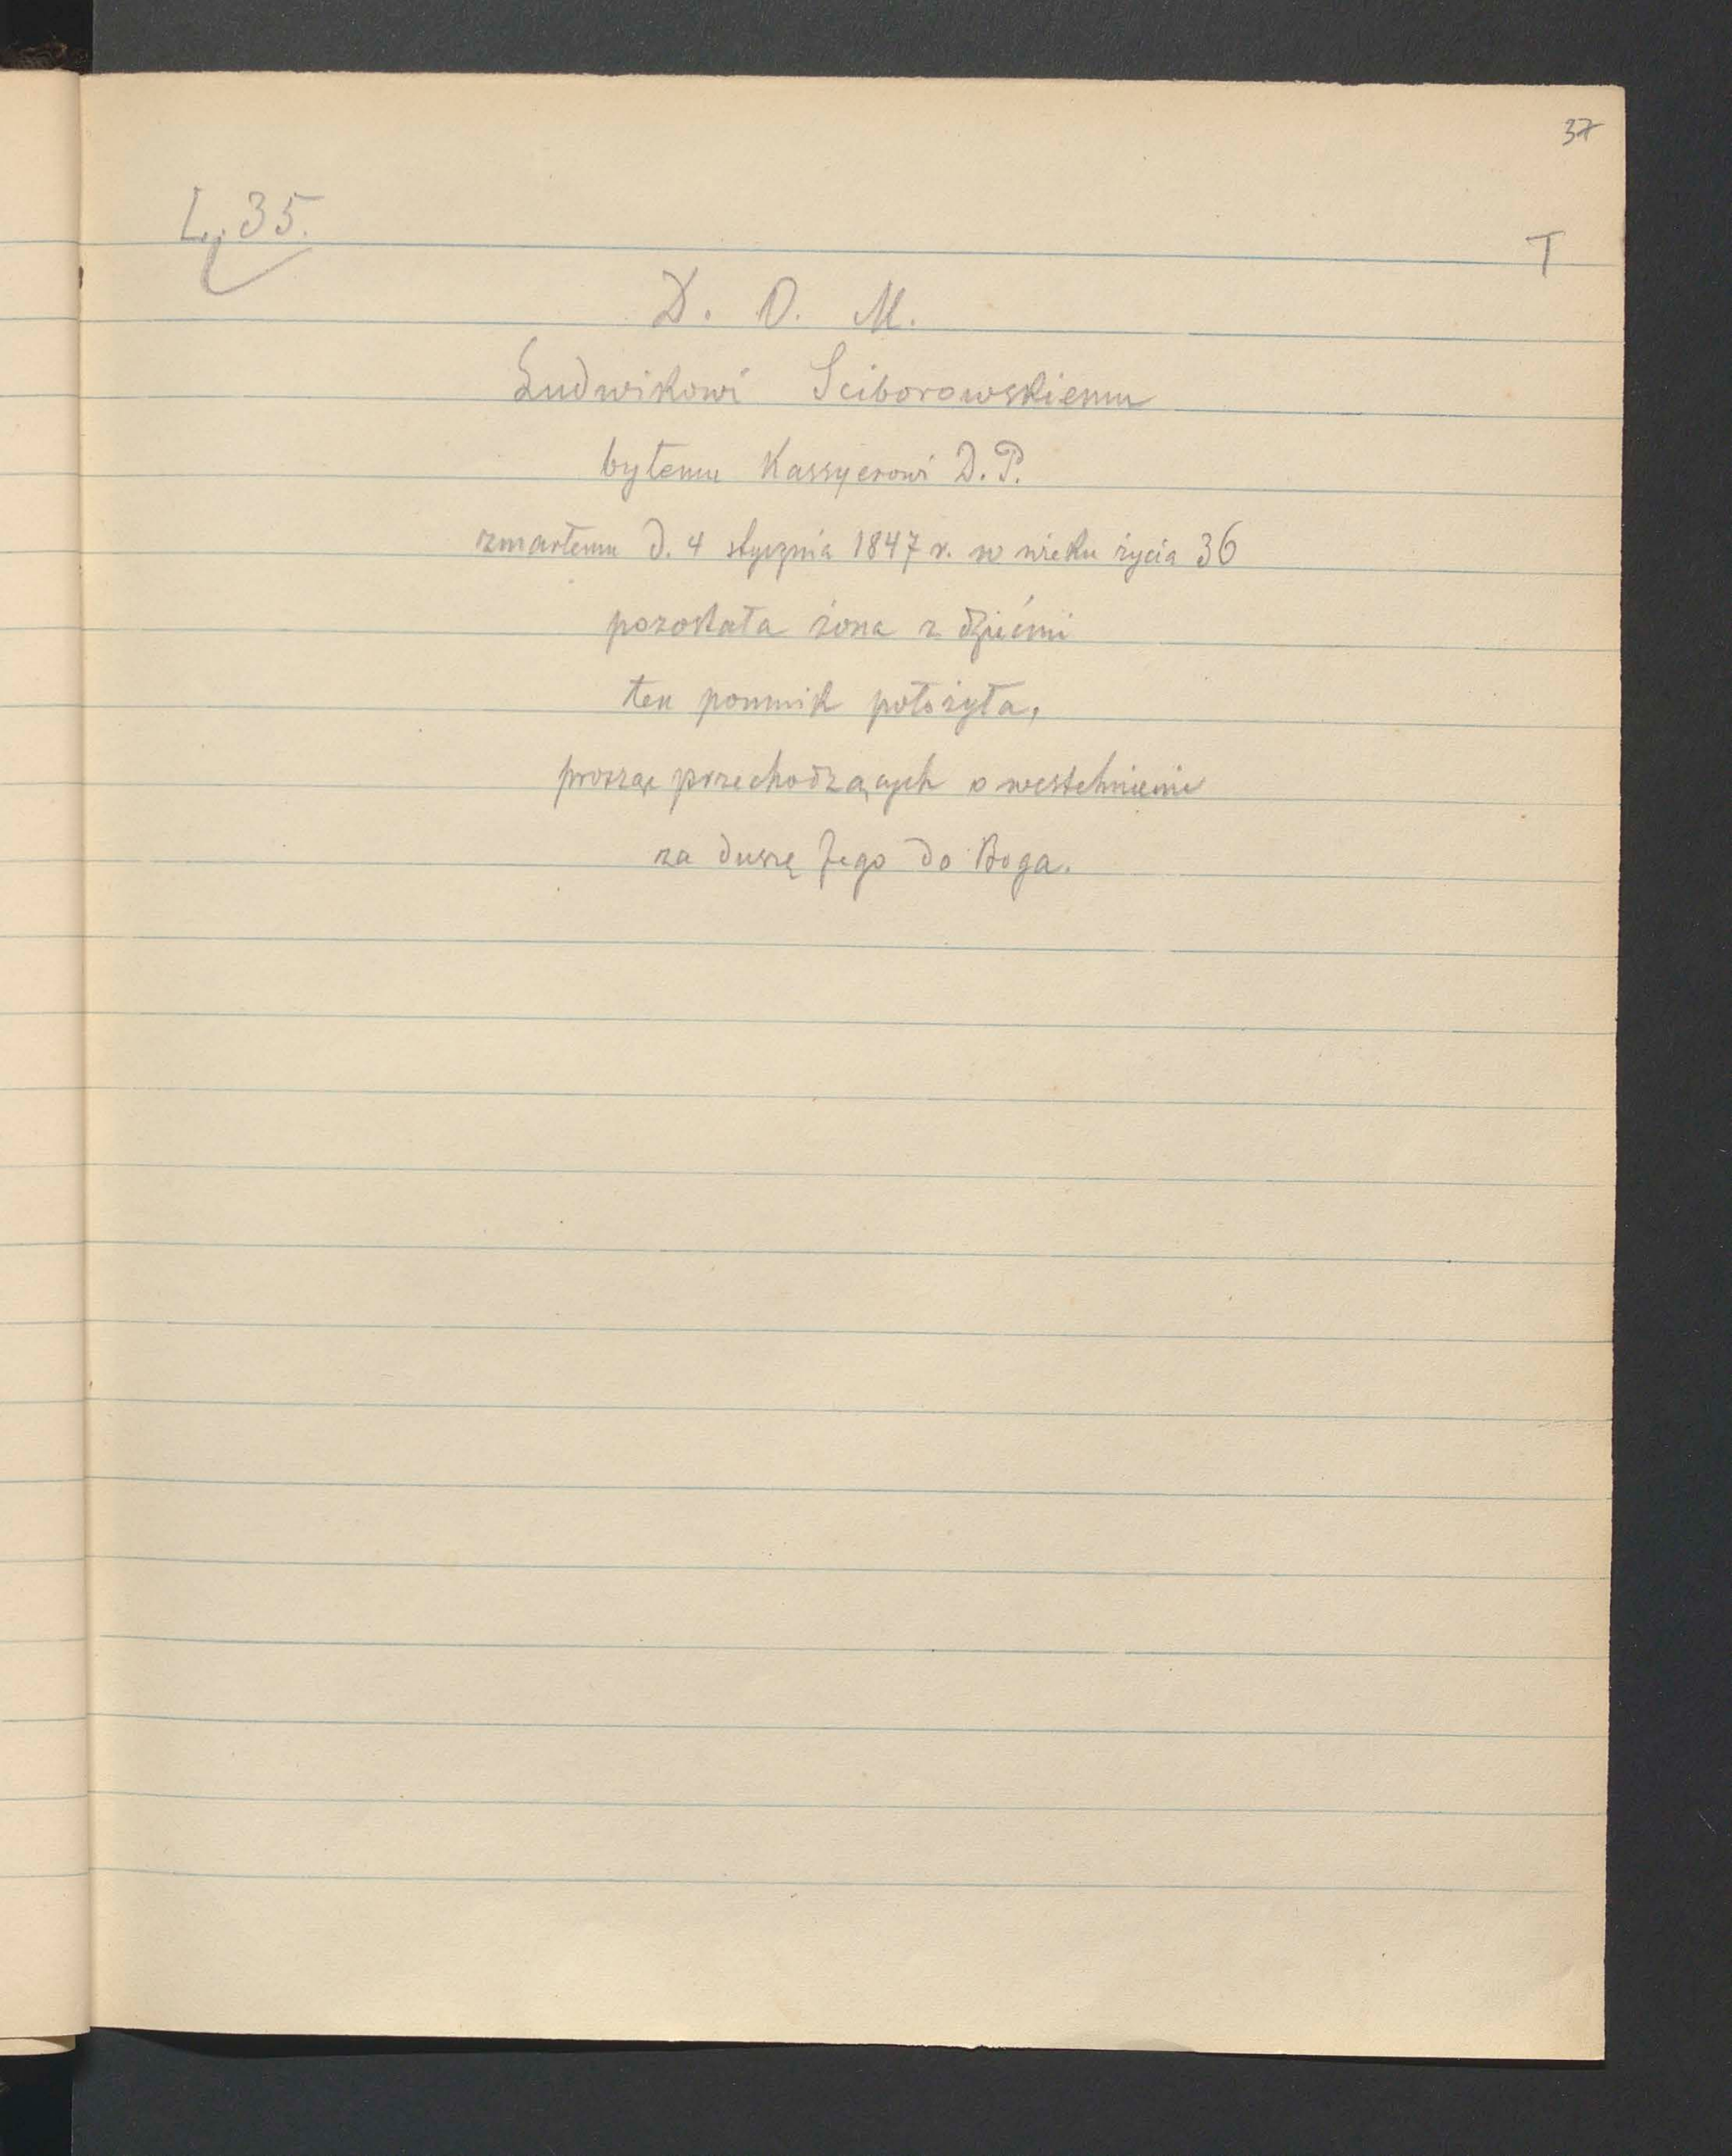 37
L. 35.
T
D. O. M.
Ludwikowi Sciborowskiemu
byłemu Kassyerowi D. P.
zmarłemu d. 4 stycznia 1847 r. w wieku życia 36
pozostała żona z dziećmi
ten pomnik położyła,
prosząc przechodzących o westchnienie
za duszę Jego do Boga.